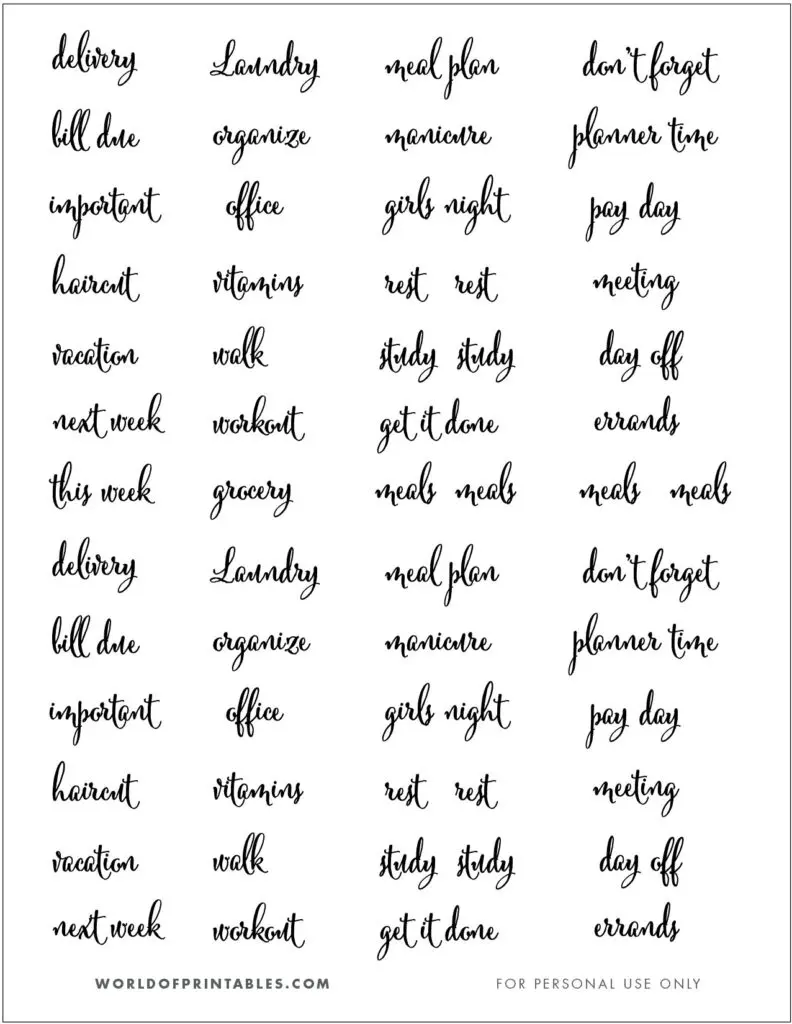 delivery Laundry meal plan don't forget
bill due organize manicure planner time
important office girls night pay day
haircut vitamins rest rest meeting
vacation walk study study day off
next week workout get it done errands
this week grocery meals meals meals meals
delivery Laundry meal plan don't forget
bill due organize manicure planner time
important office girls night pay day
haircut vitamins rest rest meeting
vacation walk study study day off
next week workout get it done errands
WORLDOFPRINTABLES.COM FOR PERSONAL USE ONLY